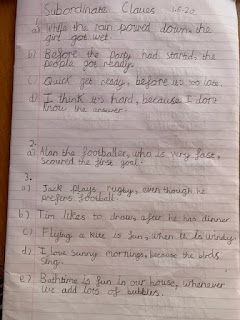 Subordinate Clauses 1.6.20
1.
a) While the rain poured down, the
girl got wet.
b) Before the party had started, the
people got ready.
c) Quick get ready, before it's too late.
d) I think it's hard, because I don't
know the answer.
2.
a) Alan the footballer, who is very fast,
scoured the first goal.
3.
a) Jack plays, rugby, even though he
prefers football.
b) Tim likes to draw, after he has dinner
c) Flying a kite is fun, when it is windy.
d) I love sunny mornings, because the birds
sing.
e) Bathtime is fun in our house, whenever
we add lots of bubbles.